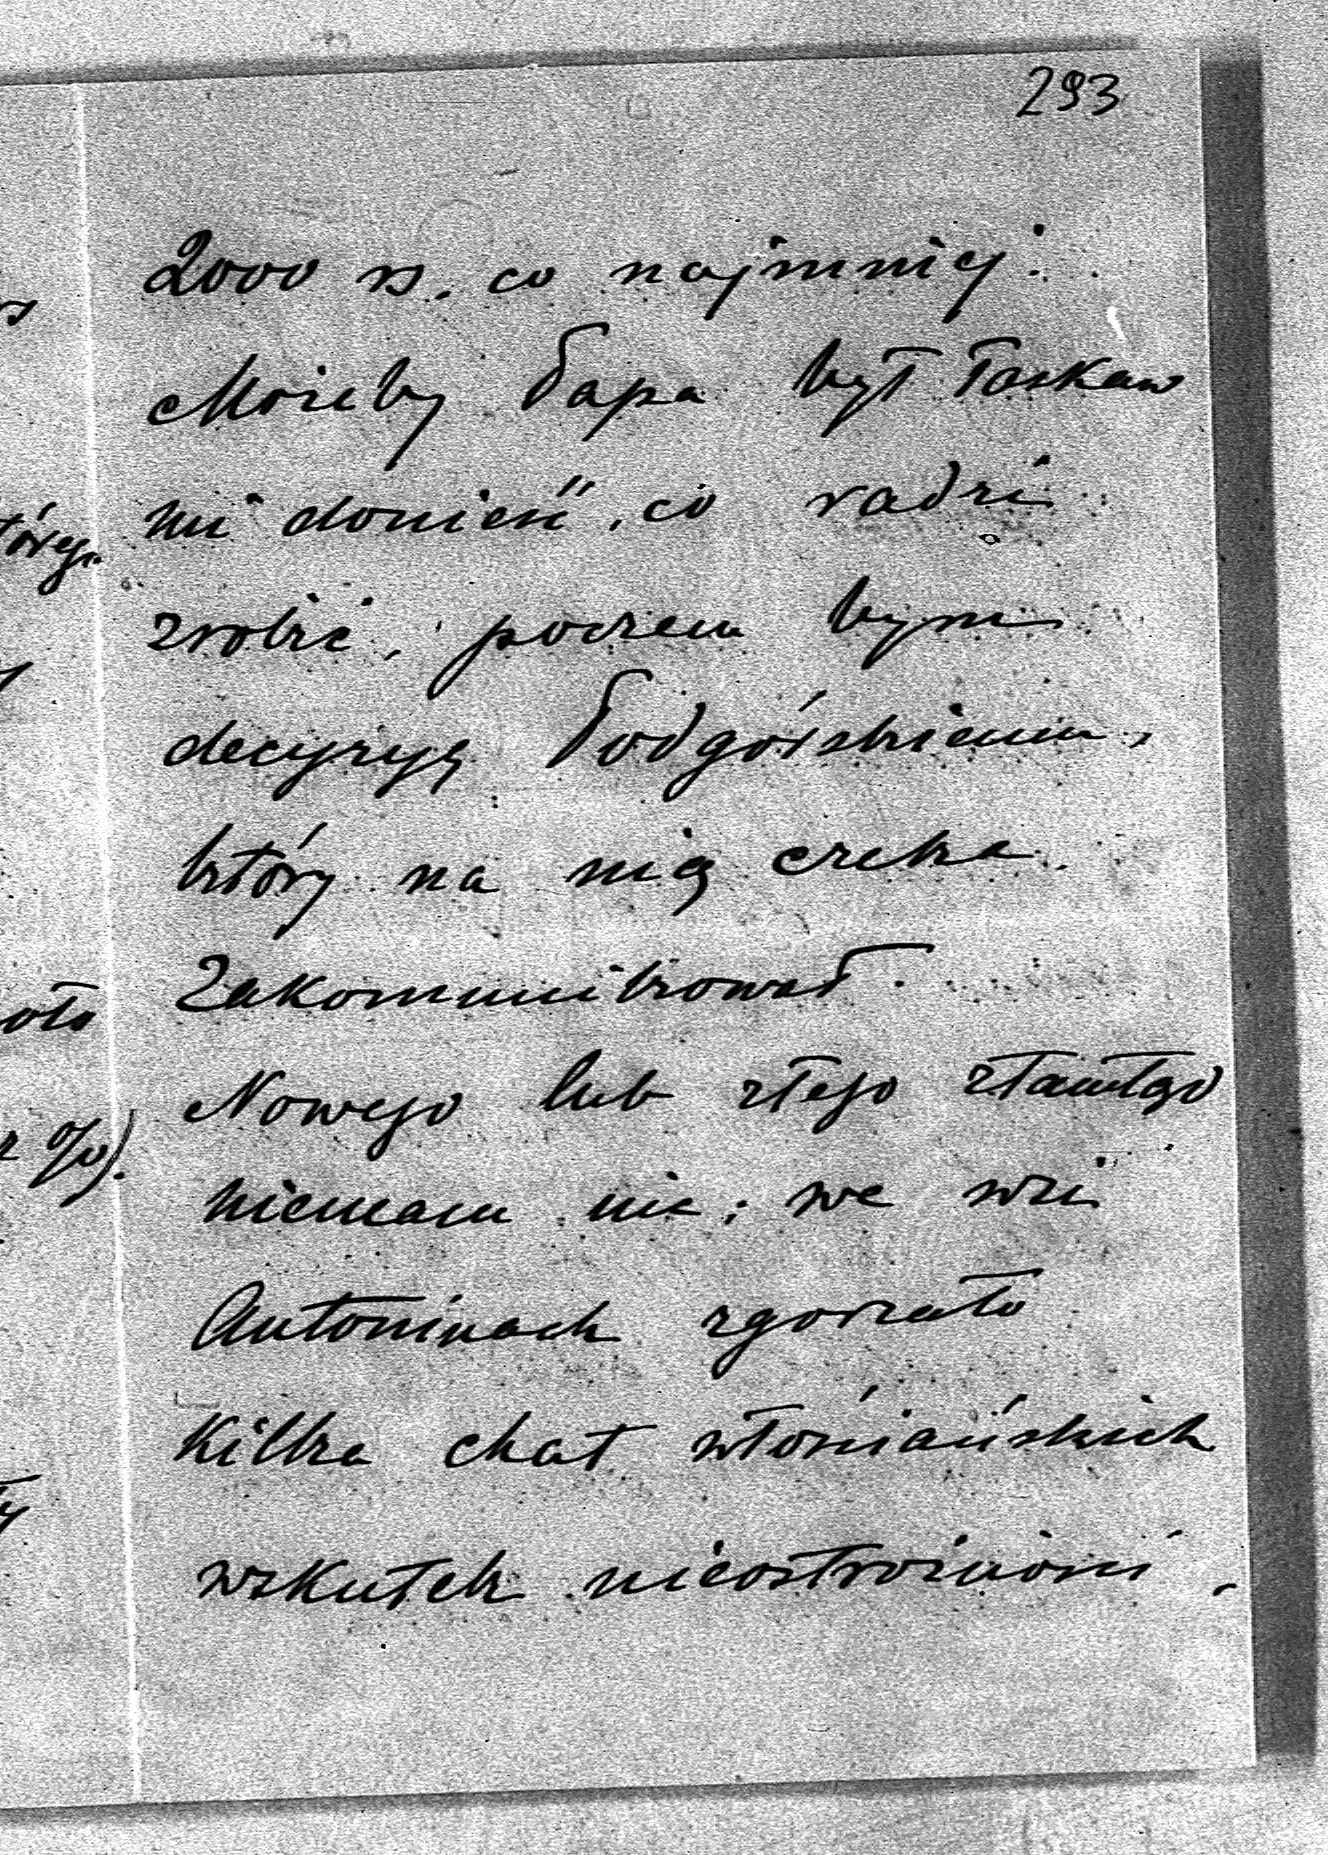 293
2000 rs. co najmniej.
Możeby Papa był łaskaw
mi donieść, co radzi
zrobić, poczem bym
decyzyę Podgórskiemu,
który na nią czeka
zakomunikował.
Nowego lub złego ztamtąd
niemam nic; we wsi
Antoninach zgorzało
kilka chat włościańskich
wskutek nieostrożności,